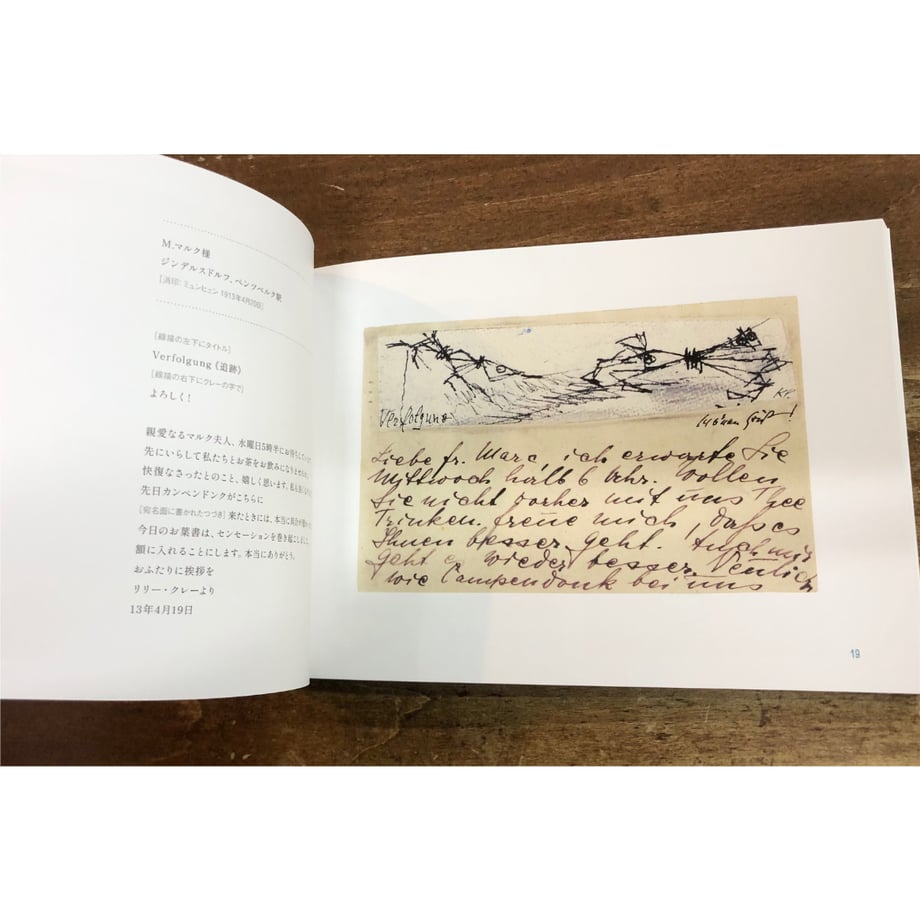 M.マルク様
ジンデルスドルフ、ペンツベルク駅
[消印: ミュンヒェン 1913年4月20日]
[線描の左下にタイトル]
Verfolgung《追跡》
[線描の右下にクレーの字で]
よろしく!
親愛なるマルク夫人、水曜日5時半にお待ちしていま
先にいらして私たちとお茶をお飲みになりませんか
快復なさったとのこと、嬉しく思います。私も
先日カンペンドンクがこちらに
[宛名面に書かれたつづき] 来たときには、本当に
今日のお葉書は、センセーションを巻き起こしまし
額に入れることにします。本当にありがとう。
おふたりに挨拶を
リリー・クレーより
13年4月19日
Verfolgung
Kl.
Liebe fr. Marc, ich erwarte Sie
Mittwoch halb 6 Uhr. Wollen
Sie nicht vorher mit uns Thee
Trinken. freue mich, daß es
Ihnen besser geht. Auch mir
geht es wieder besser. Neulich
wie Campendonk bei uns
19